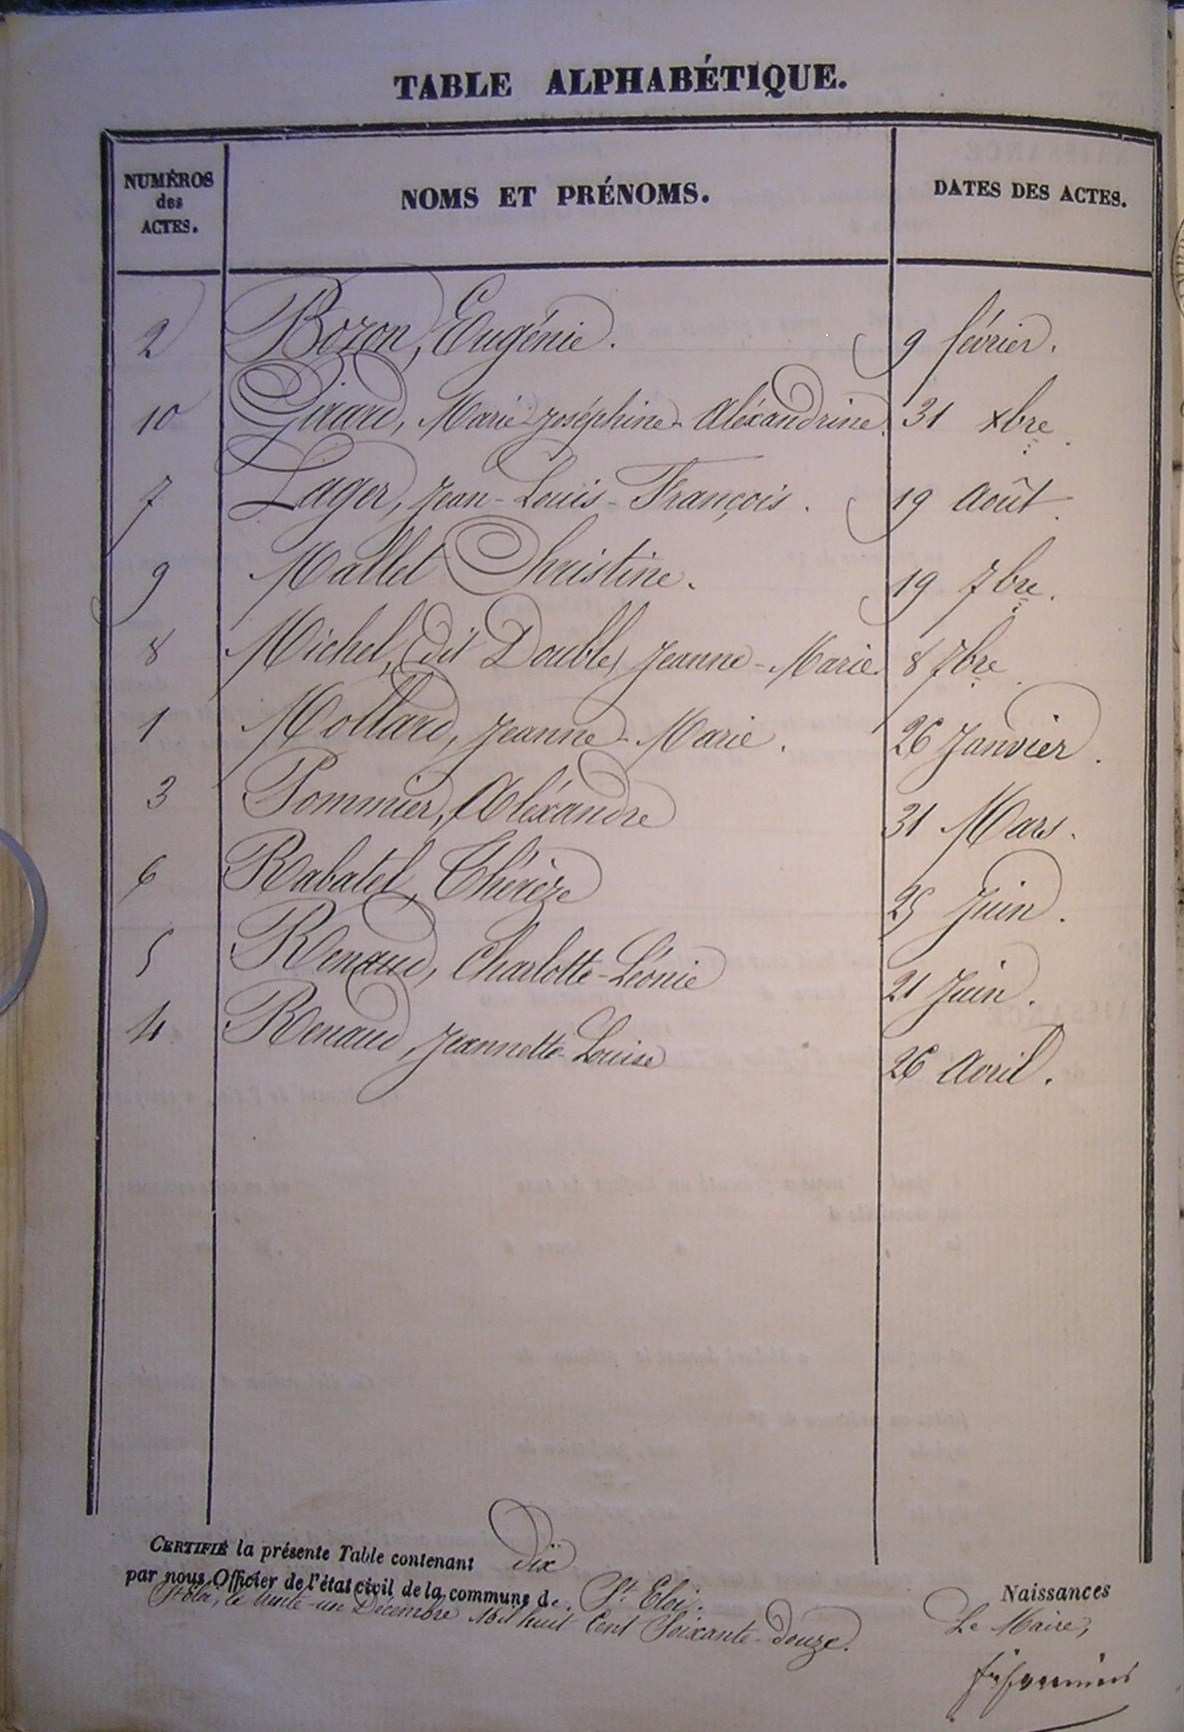 TABLE ALPHABÉTIQUE.
NUMÉROS des ACTES. NOMS ET PRÉNOMS. DATES DES ACTES.
2 Bozon, Eugénie. 9 février.
10 Girard, Marie-Joséphine-Aléxandrine. 31 xbre.
7 Lager, Jean-Louis-François. 19 Août.
9 Mallet Christine. 19 7bre.
8 Michel, (dit Double) Jeanne-Marie. 8 7bre.
1 Mollard, Jeanne-Marie. 26 Janvier.
3 Pommier, Aléxandre 31 Mars.
6 Rabatel, Thérèze 25 Juin.
5 Renaud, Charlotte-Léonie 21 Juin.
4 Renaud, Jeannette-Louise 26 Avril.
CERTIFIÉ la présente Table contenant Dix
par nous Officier de l'état civil de la commune de St Eloi.
St Eloi, le trente-un Décembre Mil huit Cent Soixante-douze.
Naissances
Le Maire,